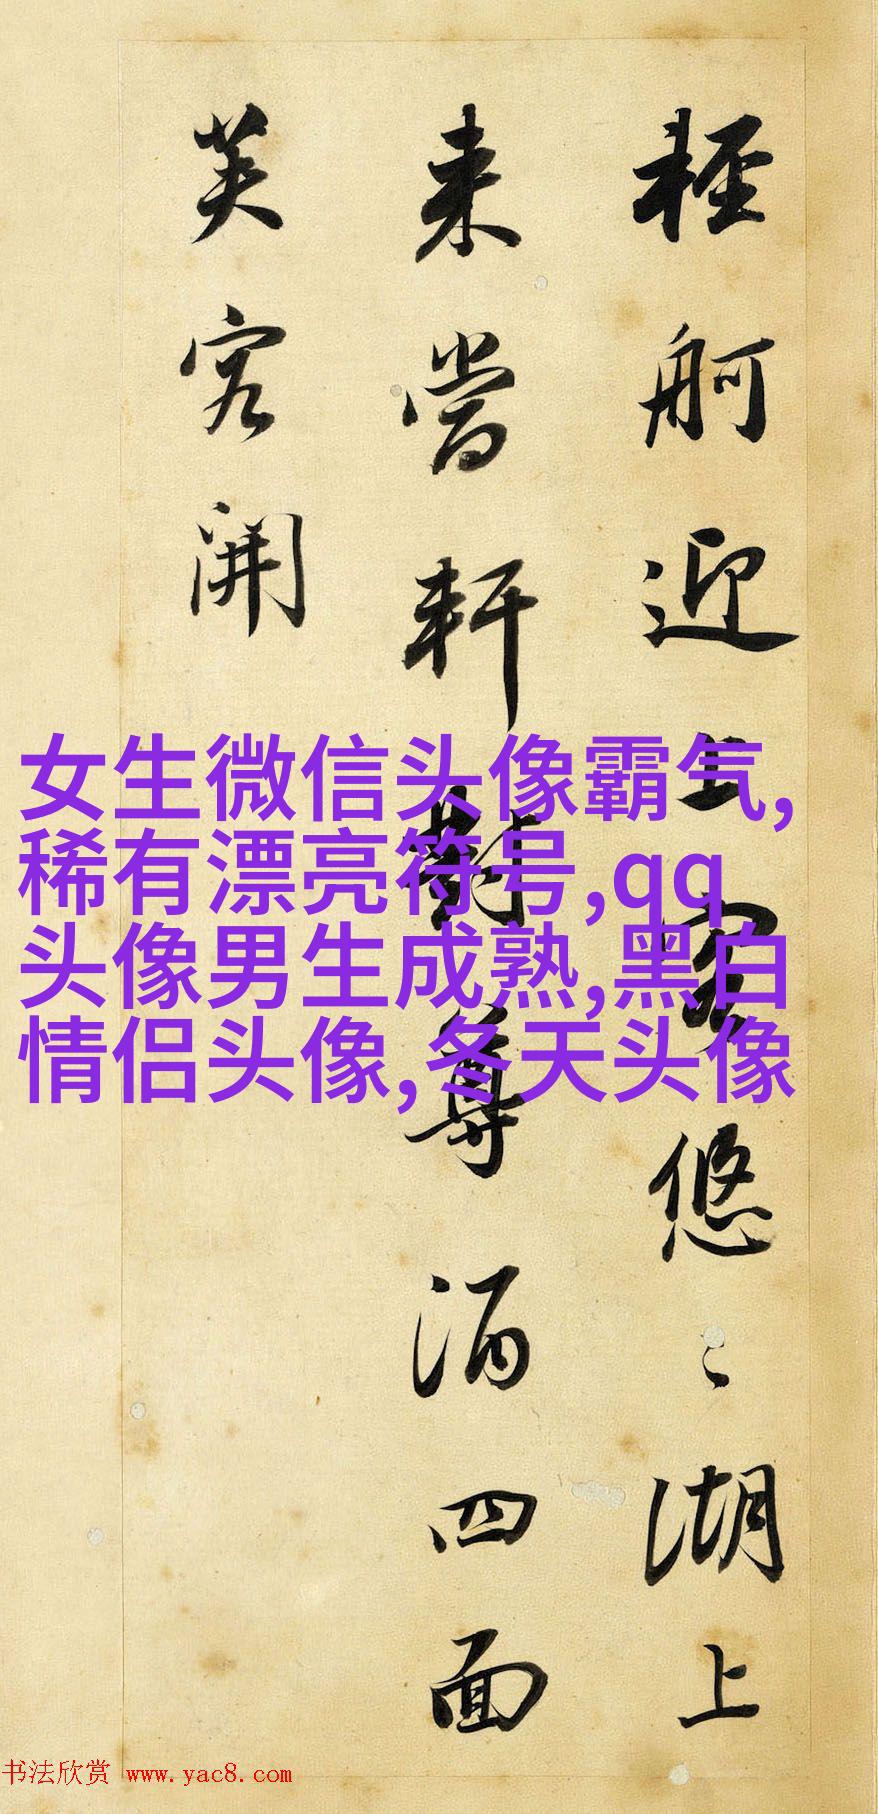 輕舸迎上客悠々湖上
来當軒對尊酒四面
芙容開
女生微信头像霸气,
稀有漂亮符号,qq
头像男生成熟,黑白
情侣头像,冬天头像
书法欣赏 www.yac8.com